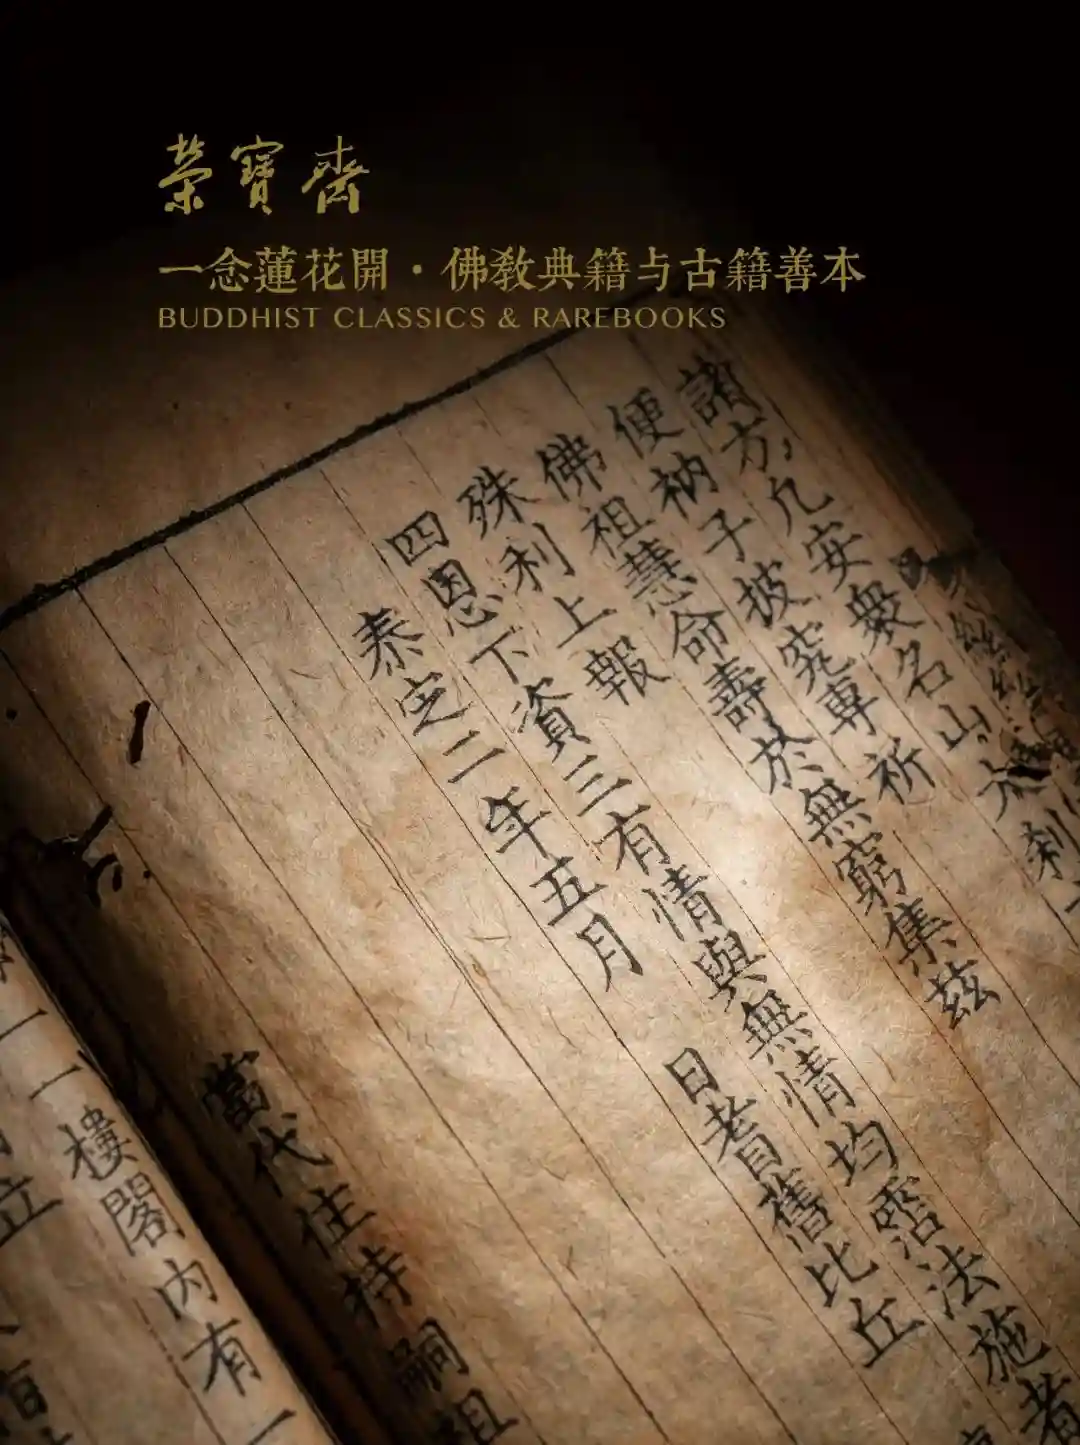 榮寶齋
一念蓮花開·佛教典籍与古籍善本
BUDDHIST CLASSICS & RAREBOOKS
諸方凡安衆名山大刹
便衲子披究專祈
佛祖慧命壽於無窮集茲
殊利上報
四恩下資三有情與無情均霑法施者
泰定二年五月 日耆舊比丘
當代住持嗣祖
樓閣内有一